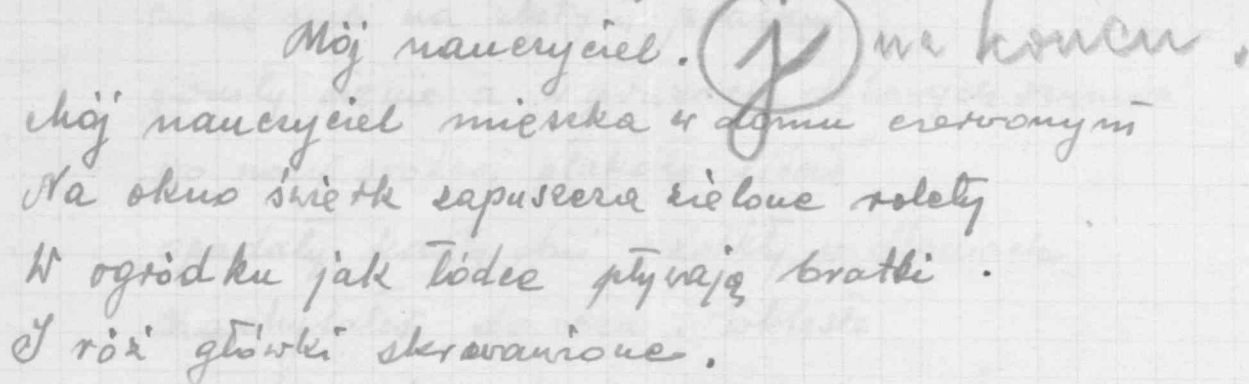 Mój nauczyciel. j na końcu.
Mój nauczyciel mięszka w domu czerwonym
Na okno świerk zapuszcza zielone rolety
W ogródku jak łódce pływają bratki.
I róż główki skrwawione.